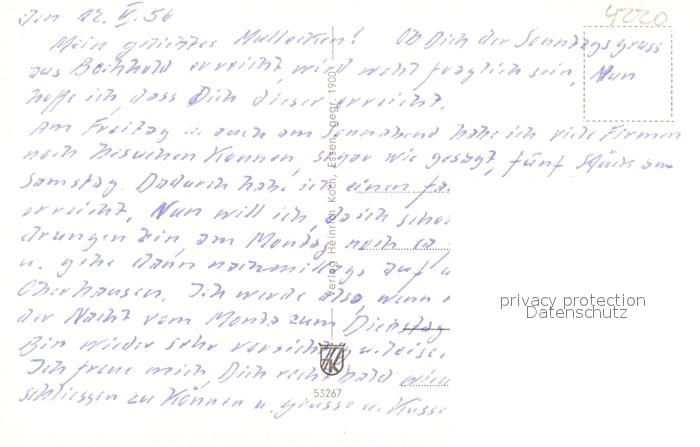 Den 12. V. 56
4220
Mein geliebtes Mullechen! Ob Dich der Sonntagsgruss
aus Bochhold erreicht, wird wohl fraglich sein, Nun
hoffe ich, dass Dich dieser erreicht.
Am Freitag u. auch am Sonnabend habe ich viele Firmen
noch besuchen können, sogar wie gesagt, fünf Stück am
Samstag. Dadurch habe ich einen
erreicht. Nun will ich, da ich schon
drungen bin, am Montag noch
u. gehe dann nachmittags auf
Oberhausen. Ich werde also, wenn
der Nacht vom Monta zum Dienstag
Bin wieder sehr vorsichtig u. leise.
Ich freue mich, Dich recht bald
schliessen zu können u. grüsse u. küsse
Verlag Heinrich Koch, Essen, gegr. 1900
53267
privacy protection
Datenschutz